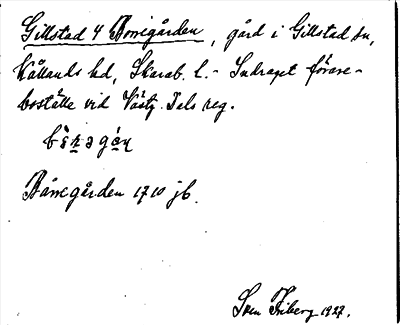 Gillstad 4 Borregården, gård i Gillstad sn,
Kållands hd, Skarab. l. - Indraget förare-
boställe vid Västg. Dals reg.
Bårregården 1710 jb.
Sven Friberg 1927.